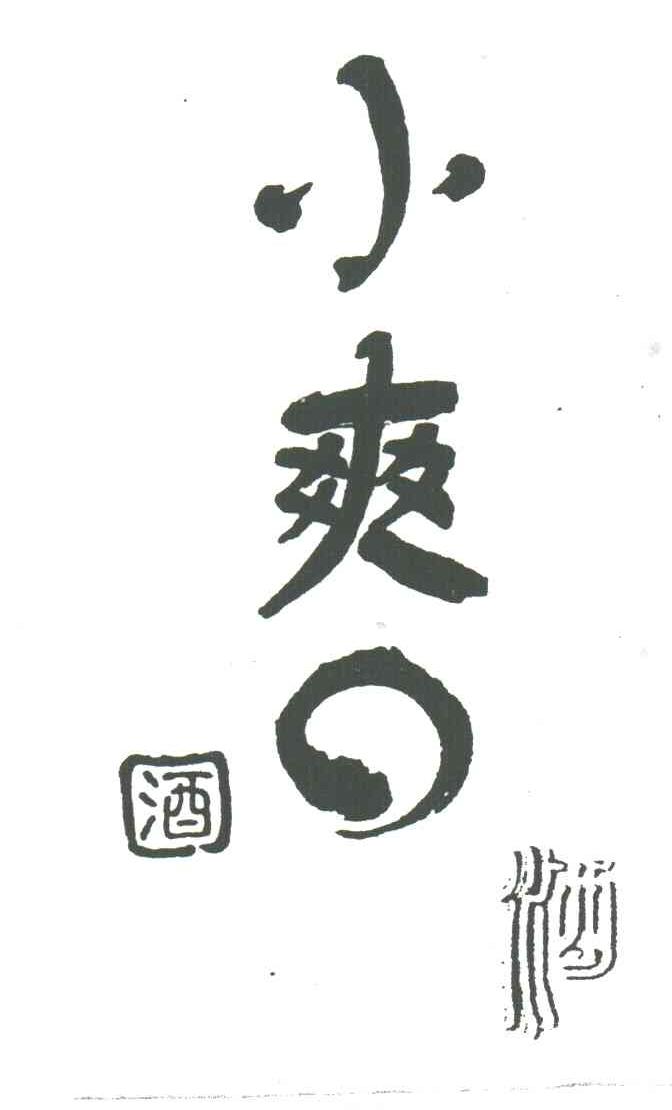 小爽
酒